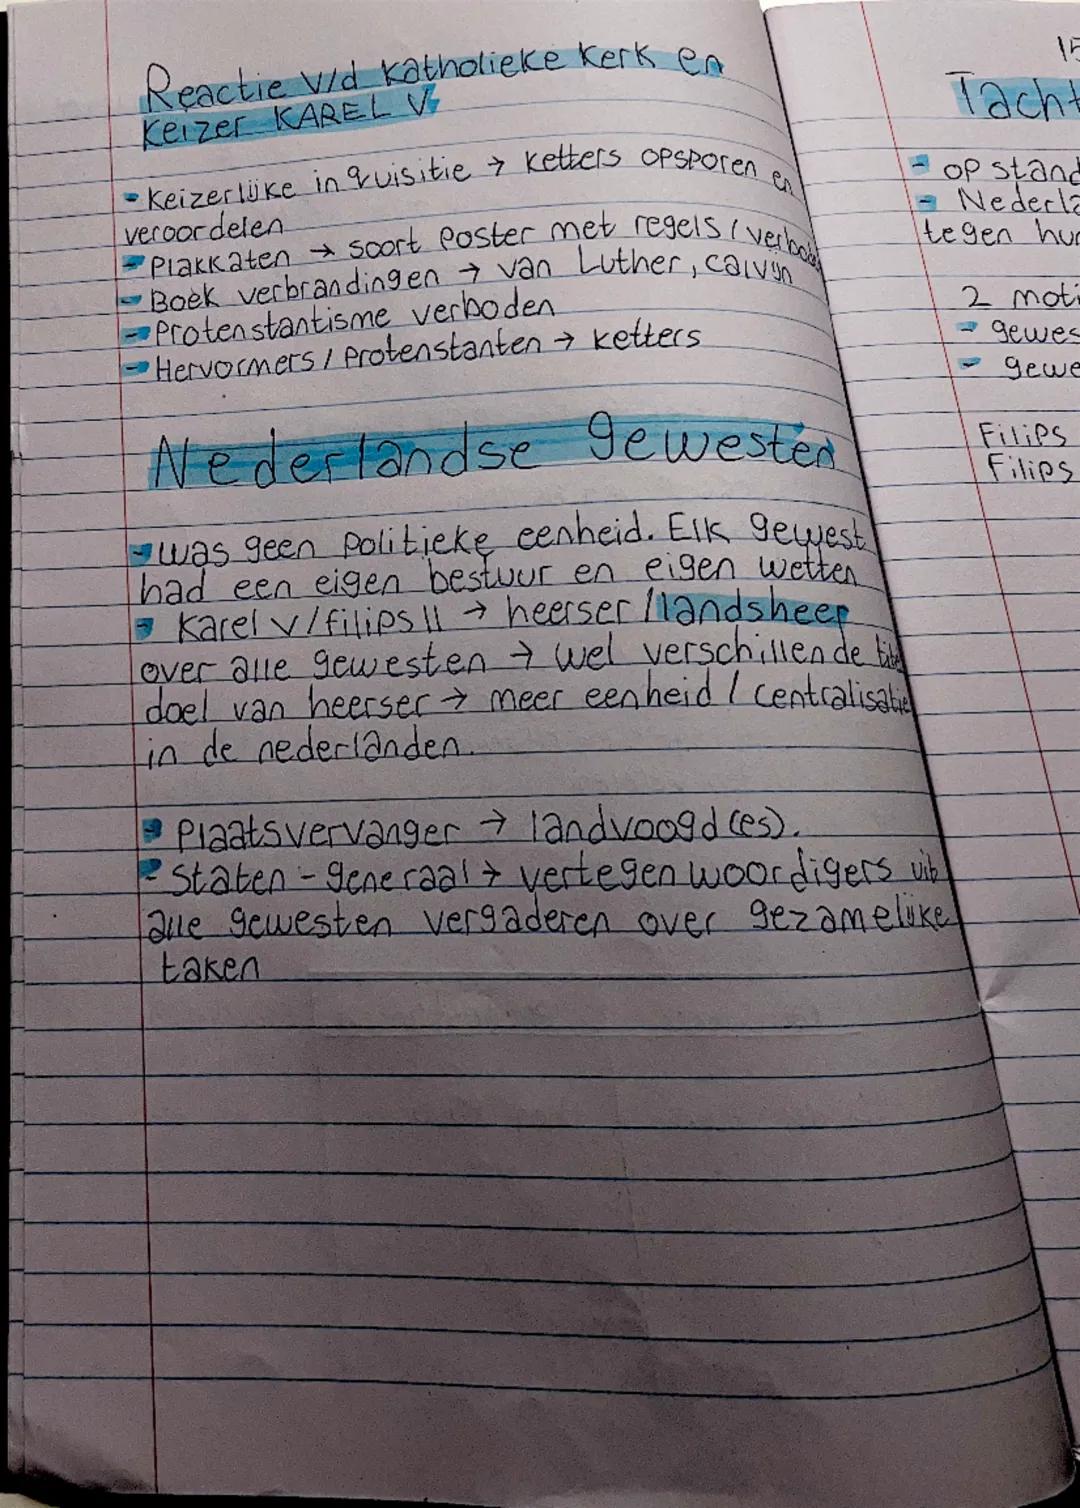 Reactie v/d Katholieke Kerk en
Keizer KAREL V
- Keizerlijke inquisitie → Ketters opsporen en
veroordelen
- Plakkaten → soort Poster met regels /
- Boek verbrandingen → van Luther, calvijn
- Protenstantisme verboden
- Hervormers / Protenstanten → Ketters
Nederlandse gewesten
- was geen Politieke eenheid. Elk gewest
had een eigen bestuur en eigen wetten
- Karel V/filips II → heerser / landsheer
over alle gewesten → wel verschillende
doel van heerser → meer eenheid / centralisatie
in de nederlanden.
- Plaatsvervanger → landvoogd(es).
- Staten-generaal → vertegenwoordigers uit
alle gewesten vergaderen over gezamelijke
taken
15
Tacht
- opstand
- Nederla
tegen hun
2 moti
- gewes
- gewe
Filips
Filips